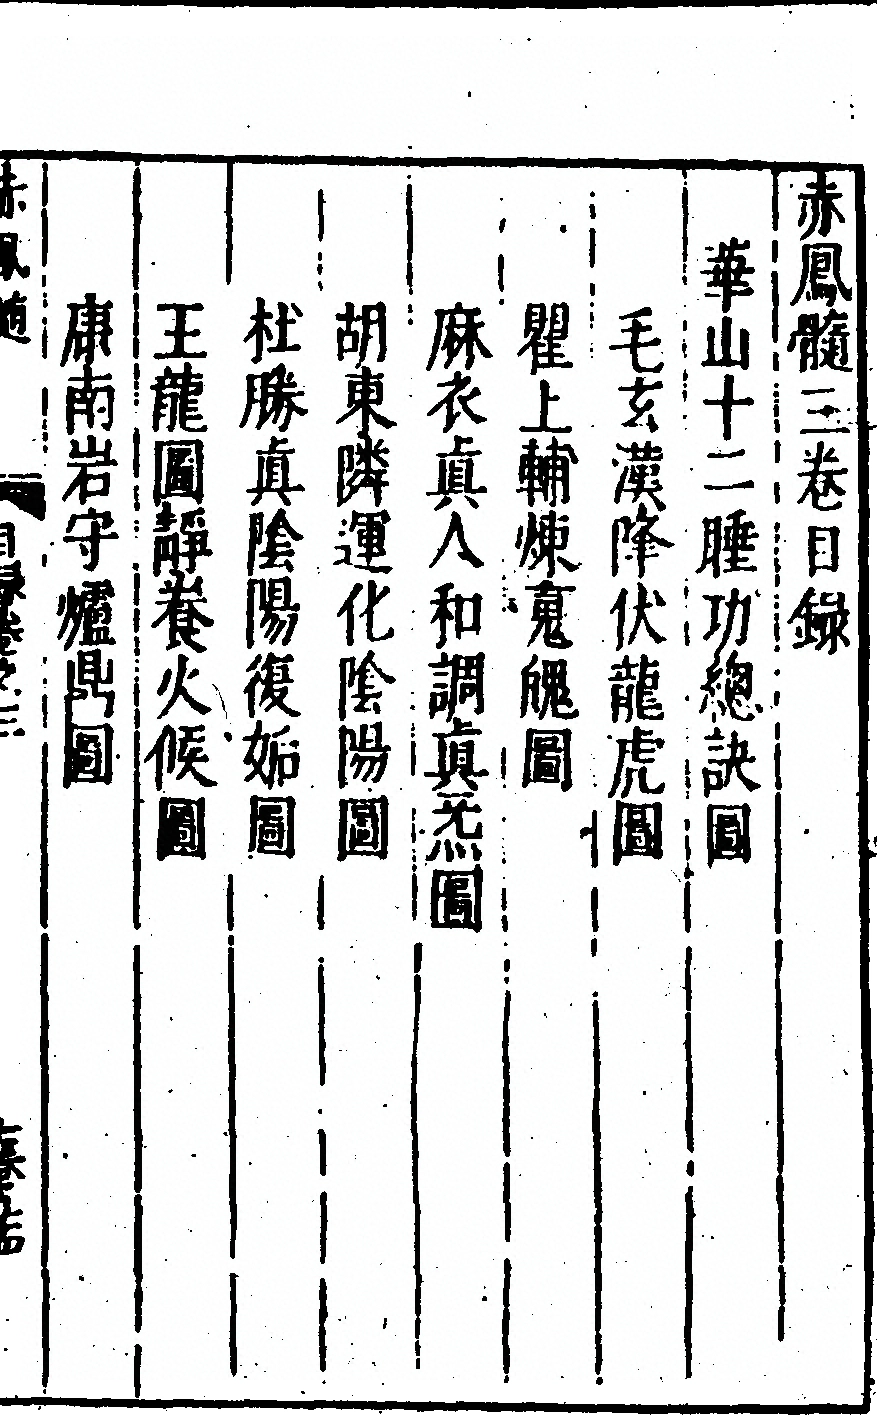 赤鳳髓三卷目錄
華山十二睡功總訣圖
毛玄漢降伏龍虎圖
瞿上輔煉䰟魄圖
麻衣真人和調真炁圖
胡東隣運化陰陽圖
杜勝真陰陽復姤圖
王龍圖靜養火候圖
康南岩守爐鼎圖
赤鳳髓
目錄卷之三